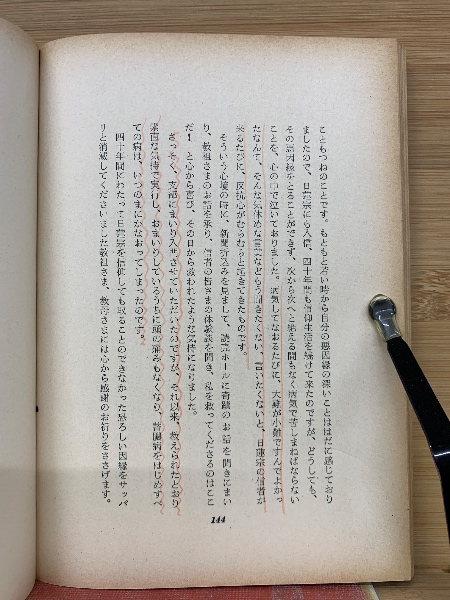 こともつねのことです。もともと若い時から自分の悪因縁の深いことははだに感じており
ましたので、日蓮宗にも入信、四十年間も信仰生活を続けて来たのですが、どうしても、
その悪因縁をとることができず、次から次へと絶える間もなく病気で苦しまねばならない
ことを、心の中で泣いておりました。病気してなおるたびに、大難が小難ですんでよかっ
たなんて、そんな気休めな言葉などもう聞きたくない、言いたくないと、日蓮宗の信者が
来るたびに、反抗心がむらむらと起きてきたものです。
そういう心境の時に、新聞折込みを見まして、読売ホールに奇蹟のお話を聞きにまい
り、教祖さまのお話を承り、信者の皆さまの体験談を聞き、私を救ってくださるのはここ
だ!と心から喜び、その日から救われたような気持になりました。
さっそく、支部にまいり入会させていただいたのですが、それ以来、教えられたとおり
素直な気持で実行し、おまいりしているうちに頭の痛みもなくなり、腎臓病をはじめすべ
ての病は、いつのまにかなおってしまったのです。
四十年間にわたって日蓮宗を信仰しても取ることのできなかった恐ろしい因縁をサッパ
リと消滅してくださいました教祖さま、教母さまには心から感謝のお祈りをささげます。
144